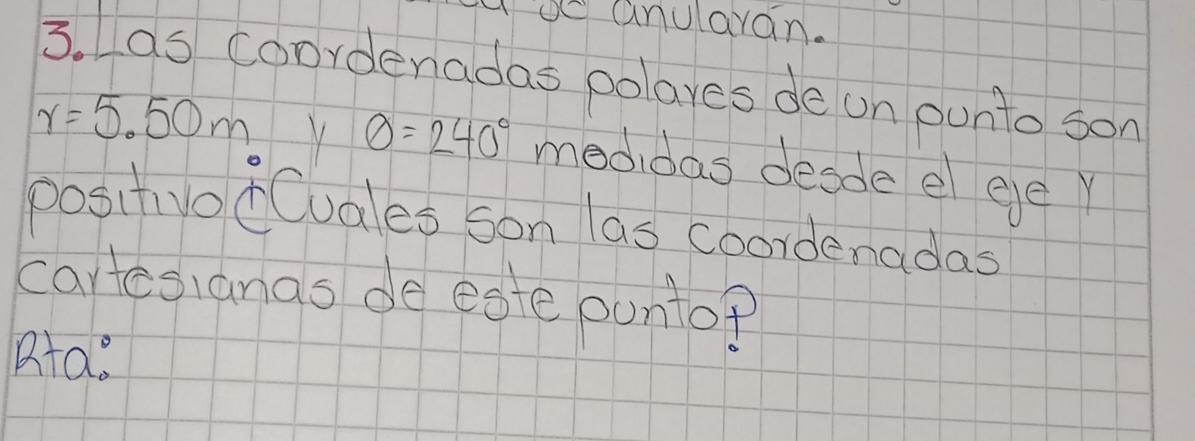 anularán.
3. Las coordenadas polares de un punto son
r=5.50m y θ=240° medidas desde el eje y
positivo ¿Cuales son las coordenadas
cartesianas de este punto?
Rta: